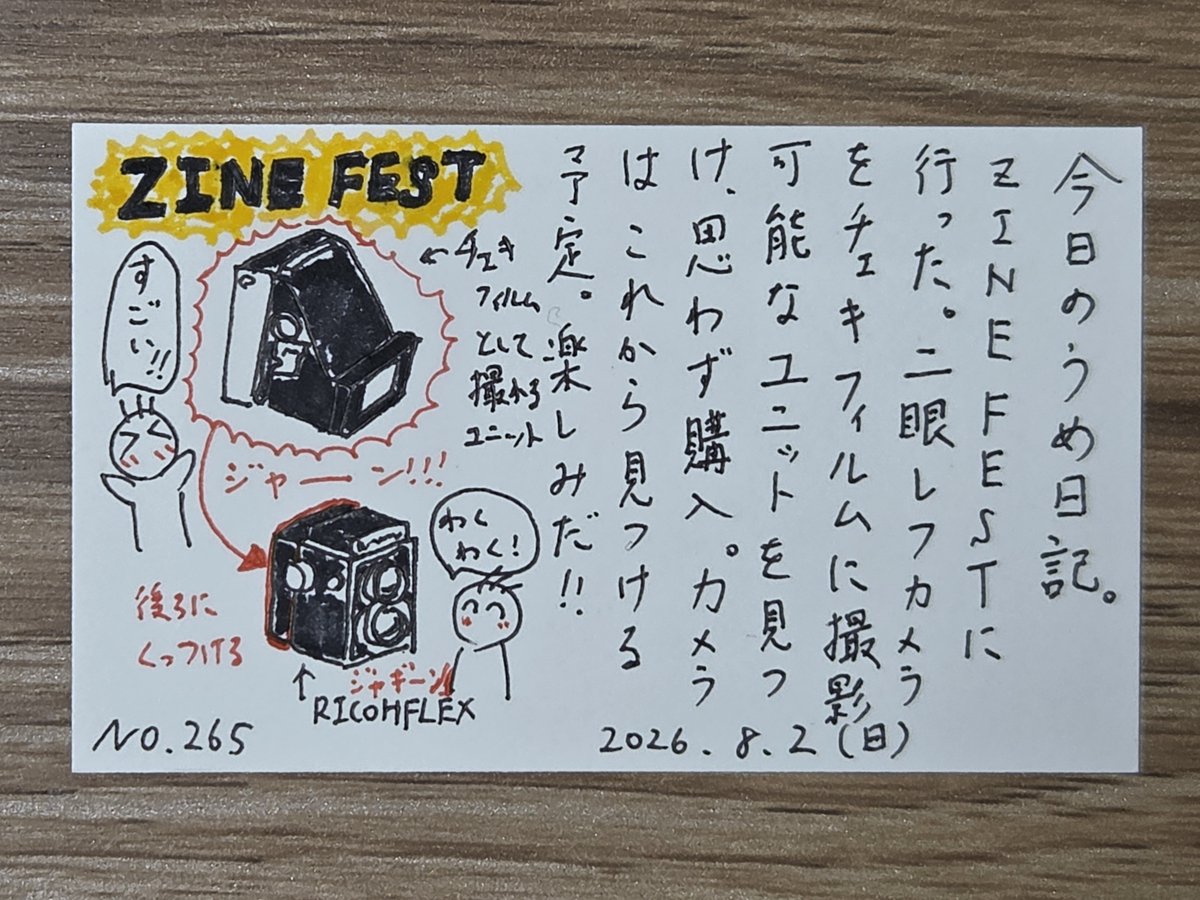 今日のうめ日記。
ZINE FESTに
行った。二眼レフカメラ
をチェキフィルムに撮影
可能なユニットを見つ
け、思わず購入。カメラ
はこれから見つける
予定。楽しみだ!!
ZINE FEST
すごい!!
←チェキ
フィルム
として
撮れる
ユニット
ジャーン!!!
わく
わく!
後ろに
くっつける
ジャギーン!!
↑
RICOHFLEX
NO.265
2026.8.2(日)